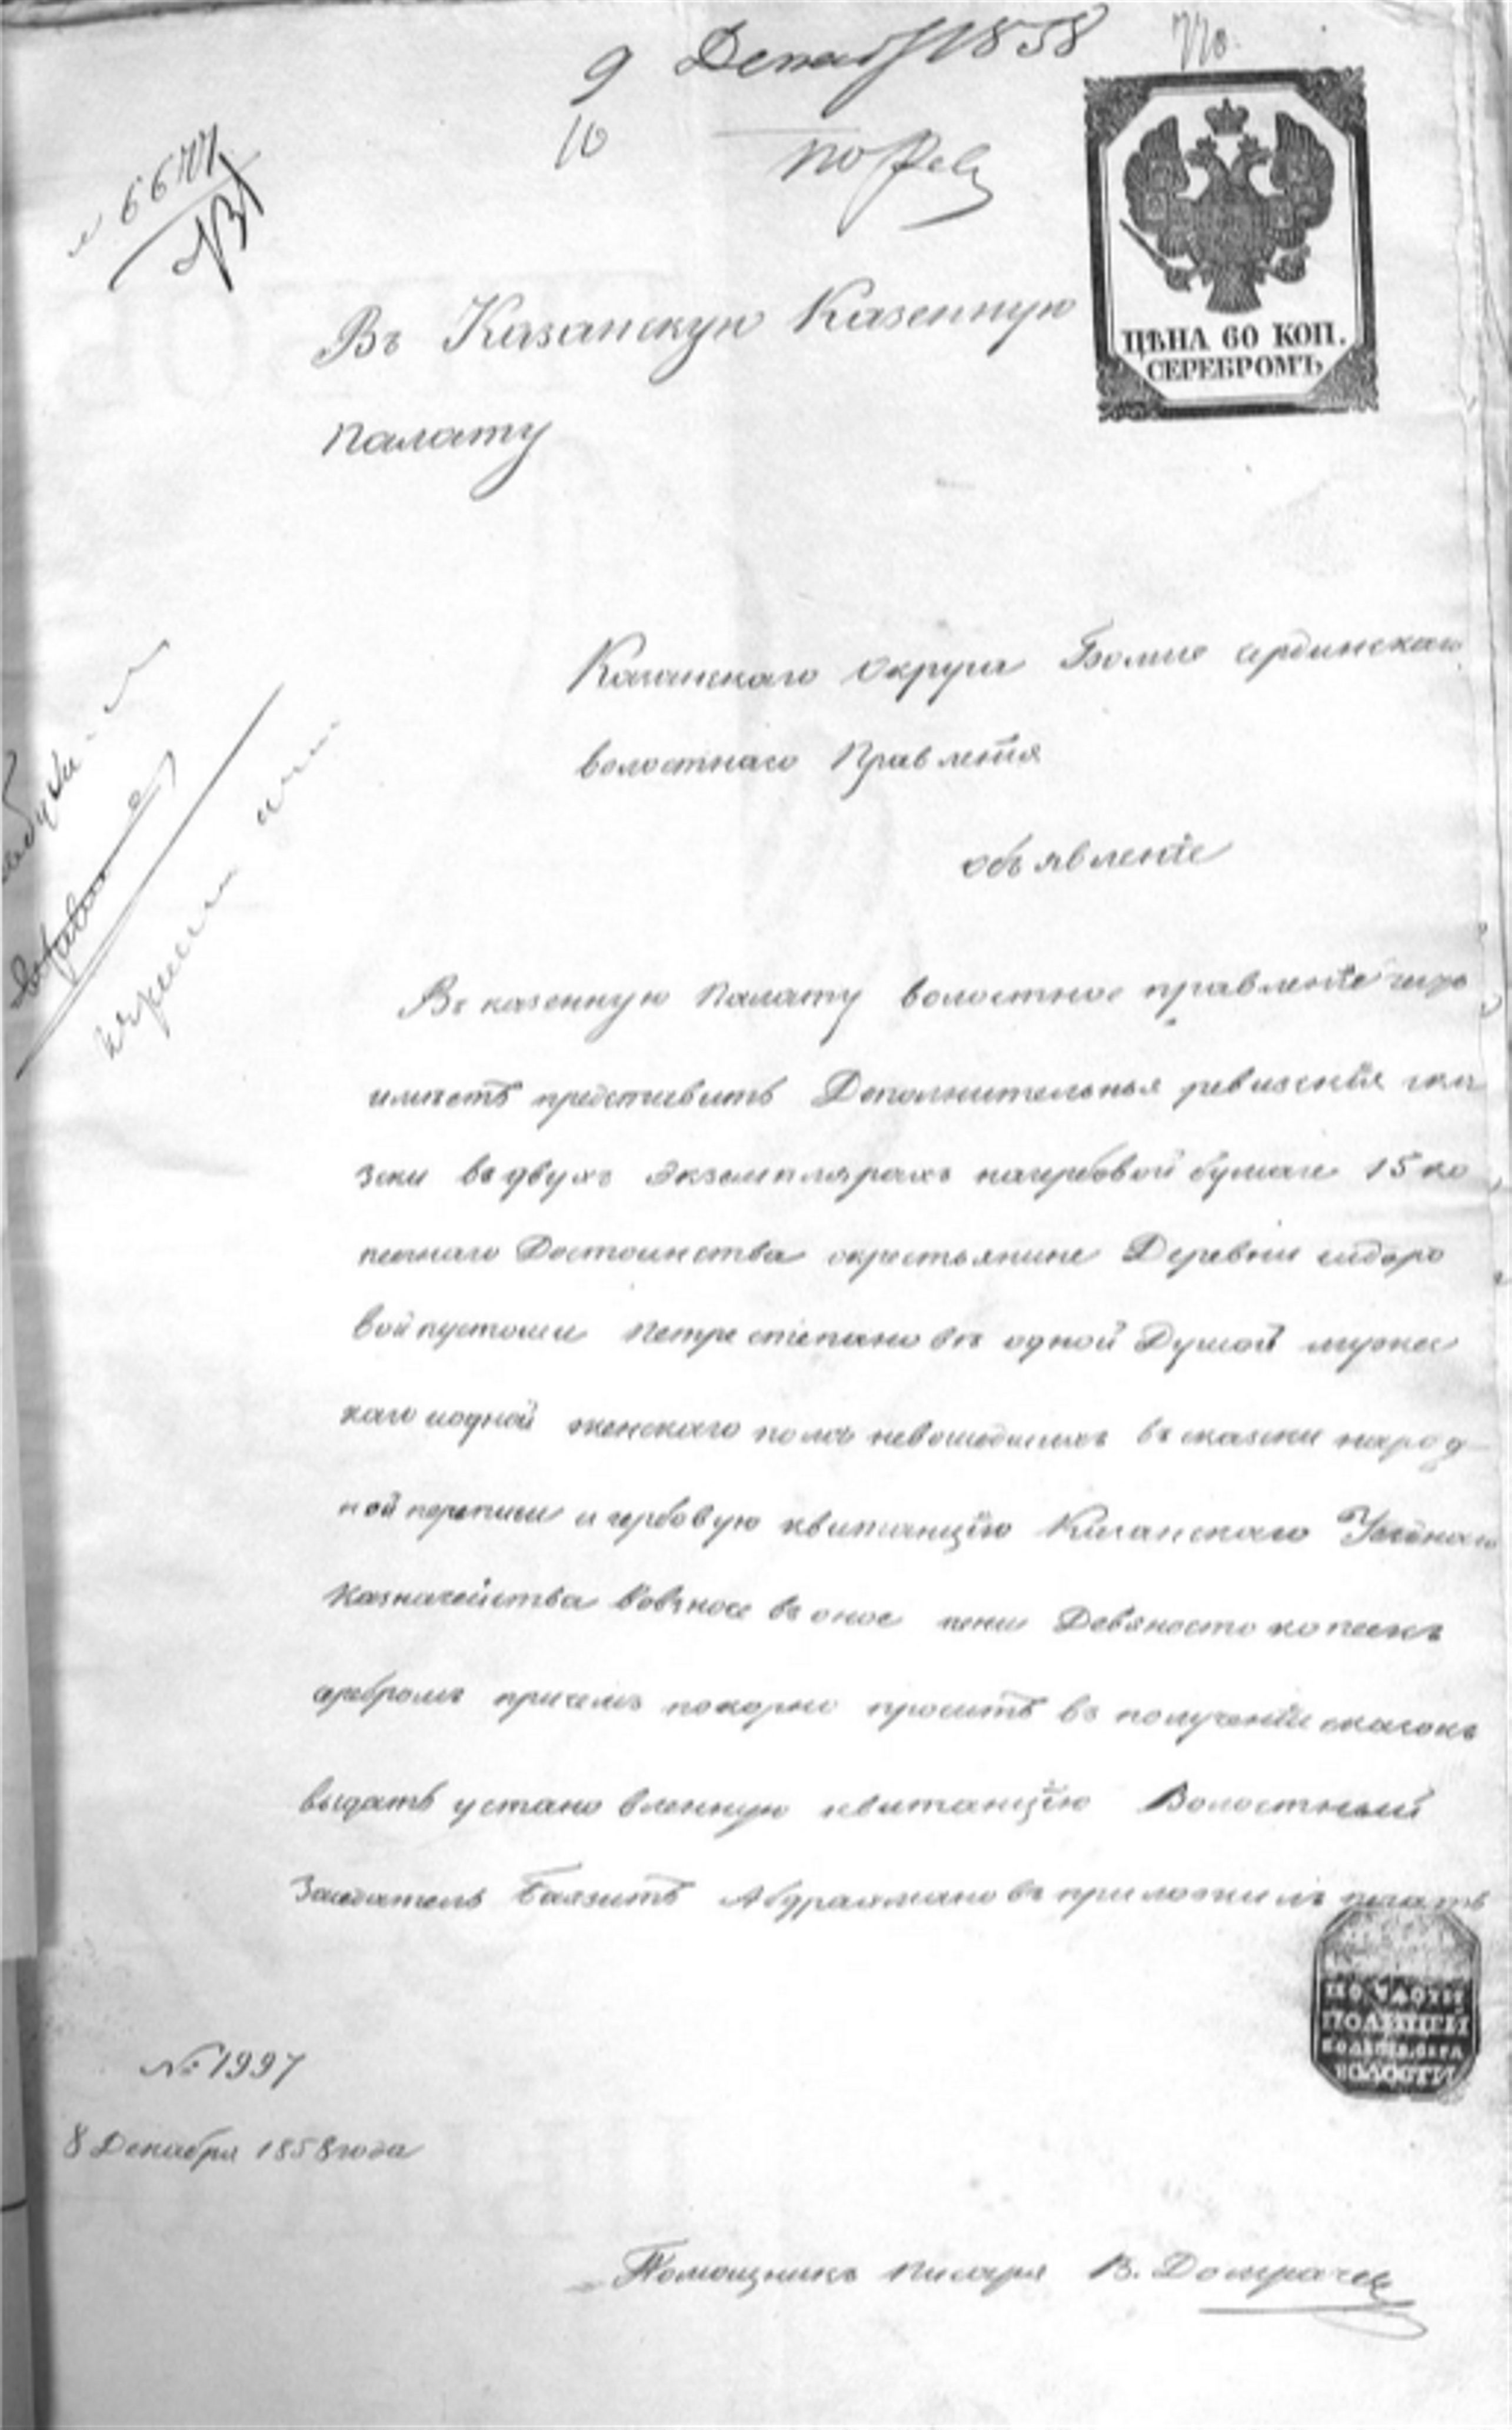 9 Декаб 1858
10
6677
Въ Казанскую Казенную
ЦѢНА 60 КОП.
СЕРЕБРОМЪ
палату
Казанскаго Округа Больше сердинскаго
волостнаго Правленія
объявленіе
Въ казенную палату волостное правленіе честь
имѣетъ представить Дополнительныя ревизскія ска
зки въ двухъ экземплярахъ нагербовой бумаге 15 ко
печнаго Достоинства окрестьянине Деревни сидоро
вой пустоши Петре степановѣ одной Душой мужес
каго иодной женскаго пола невошедшихъ въ сказки народ
ной переписи и гербовую квитанцію Казанскаго Уезднаго
Казначейства вовзносе въ оное пени Девяносто копеекъ
серебромъ причемъ покорно проситъ въ полученіи сказокъ
выдать установленную квитанцію Волостный
Заседатель Баязитъ Абдрахмановъ приложилъ печать
ПО ЧАСТИ
ПОЛИЦЕЙ
ВОЛОСТИ
№ 1997
8 Декабря 1858 года
Помощникъ Писаря В. Домрачев